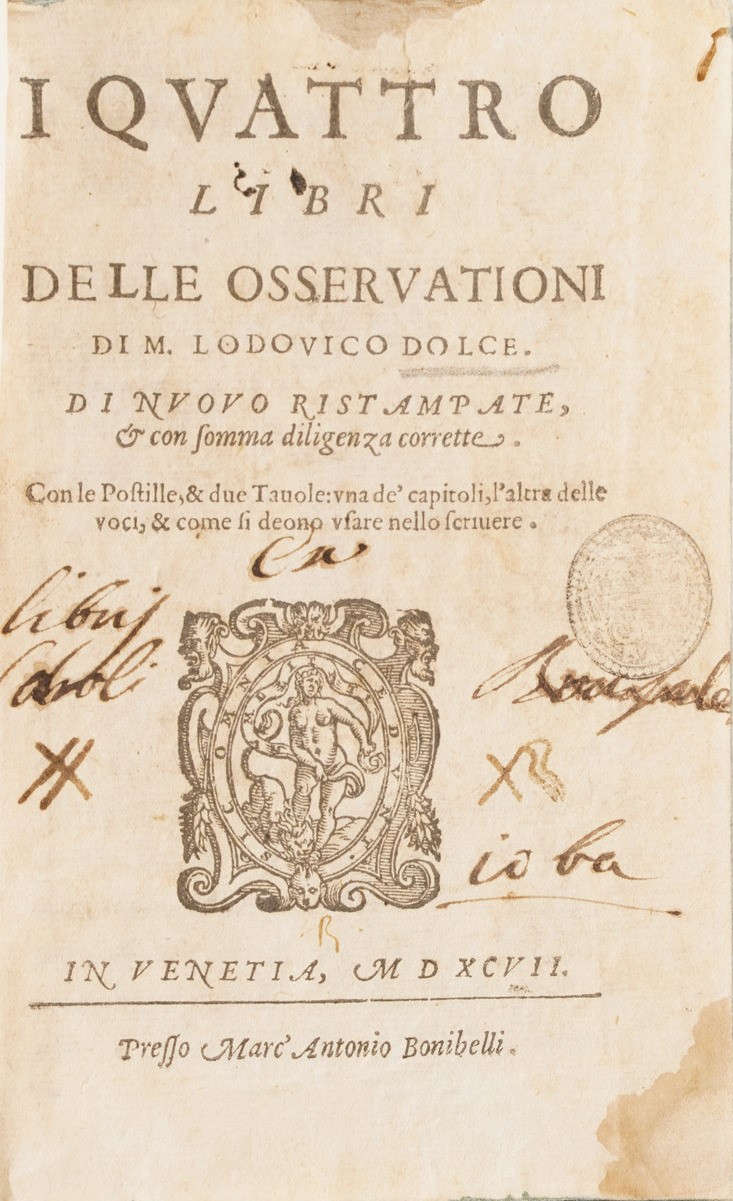 I QVATTRO
LIBRI
DELLE OSSERVATIONI
DI M. LODOVICO DOLCE.
DI NVOVO RISTAMPATE,
& con ſomma diligenza corrette.
Con le Poſtille, & due Tauole: vna de' capitoli, l'altra delle
voci, & come ſi deono vſare nello ſcriuere.
Ex
libris
Caroli
SIC OMNIA
IN VENETIA, M D XCVII.
Preſſo Marc' Antonio Bonibelli.